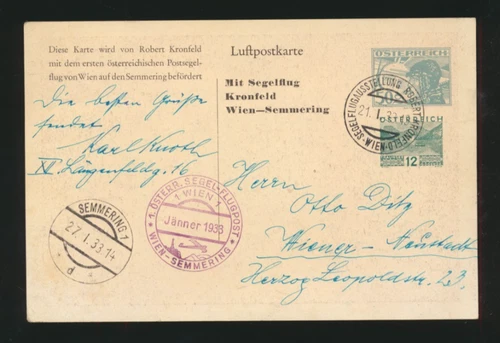 Diese Karte wird von Robert Kronfeld
mit dem ersten österreichischen Postsegel-
flug von Wien auf den Semmering befördert
Luftpostkarte
Mit Segelflug
Kronfeld
Wien—Semmering
ÖSTERREICH
50
SEGELFLUGAUSSTELLUNG ROBERT KRONFELD
21. I. 33
WIEN
ÖSTERREICH
12
Die besten Grüße
sendet
Karl Knoth
Längenfeldg. 16
SEMMERING 1
27. I. 33. 14
* d *
* 1. ÖSTERR. SEGEL-FLUGPOST *
1 WIEN 1
Jänner 1933
WIEN-SEMMERING
Herrn
Otto Ditz
Wiener-Neustadt
Herzog Leopoldstr. 23.